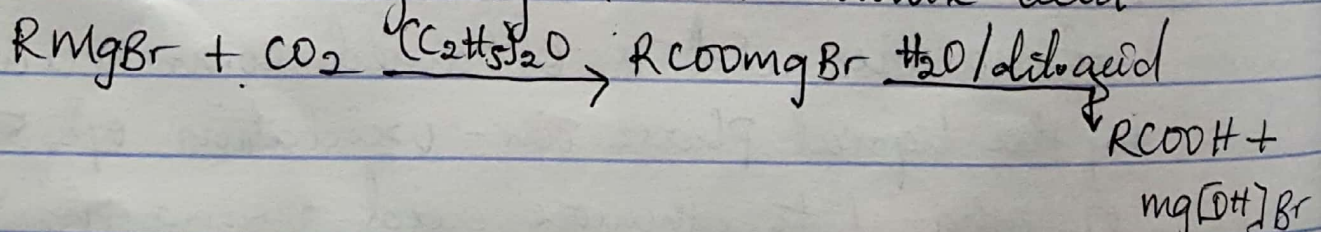 RMgBr + CO2 (C2H5)2O → RCOOMgBr H2O/dil. acid
RCOOH +
mg[OH]Br